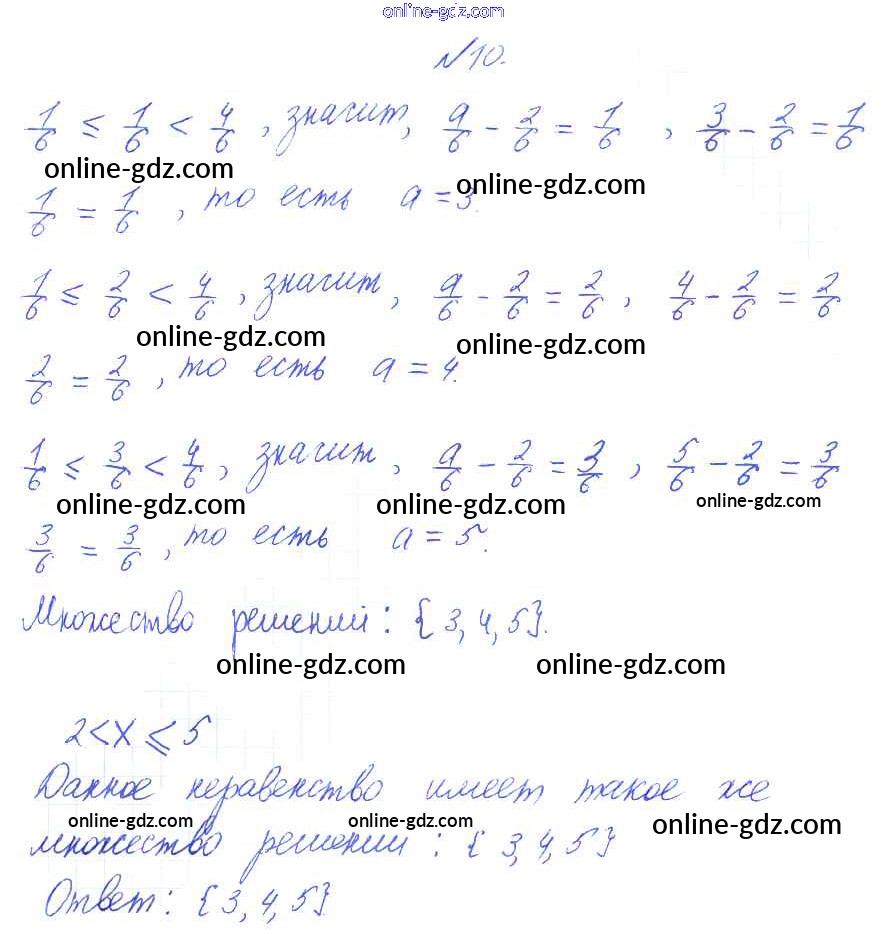 online-gdz.com
№10.
1/6 ≤ 1/6 < 4/6, значит, a/6 - 2/6 = 1/6, 3/6 - 2/6 = 1/6
online-gdz.com online-gdz.com
1/6 = 1/6, то есть a = 3.
1/6 ≤ 2/6 < 4/6, значит, a/6 - 2/6 = 2/6, 4/6 - 2/6 = 2/6
online-gdz.com online-gdz.com
2/6 = 2/6, то есть a = 4.
1/6 ≤ 3/6 < 4/6, значит, a/6 - 2/6 = 3/6, 5/6 - 2/6 = 3/6
online-gdz.com online-gdz.com online-gdz.com
3/6 = 3/6, то есть a = 5.
Множество решений: {3, 4, 5}.
online-gdz.com online-gdz.com
2 < x ⩽ 5
Данное неравенство имеет такое же
online-gdz.com online-gdz.com online-gdz.com
множество решений: {3, 4, 5}
Ответ: {3, 4, 5}.